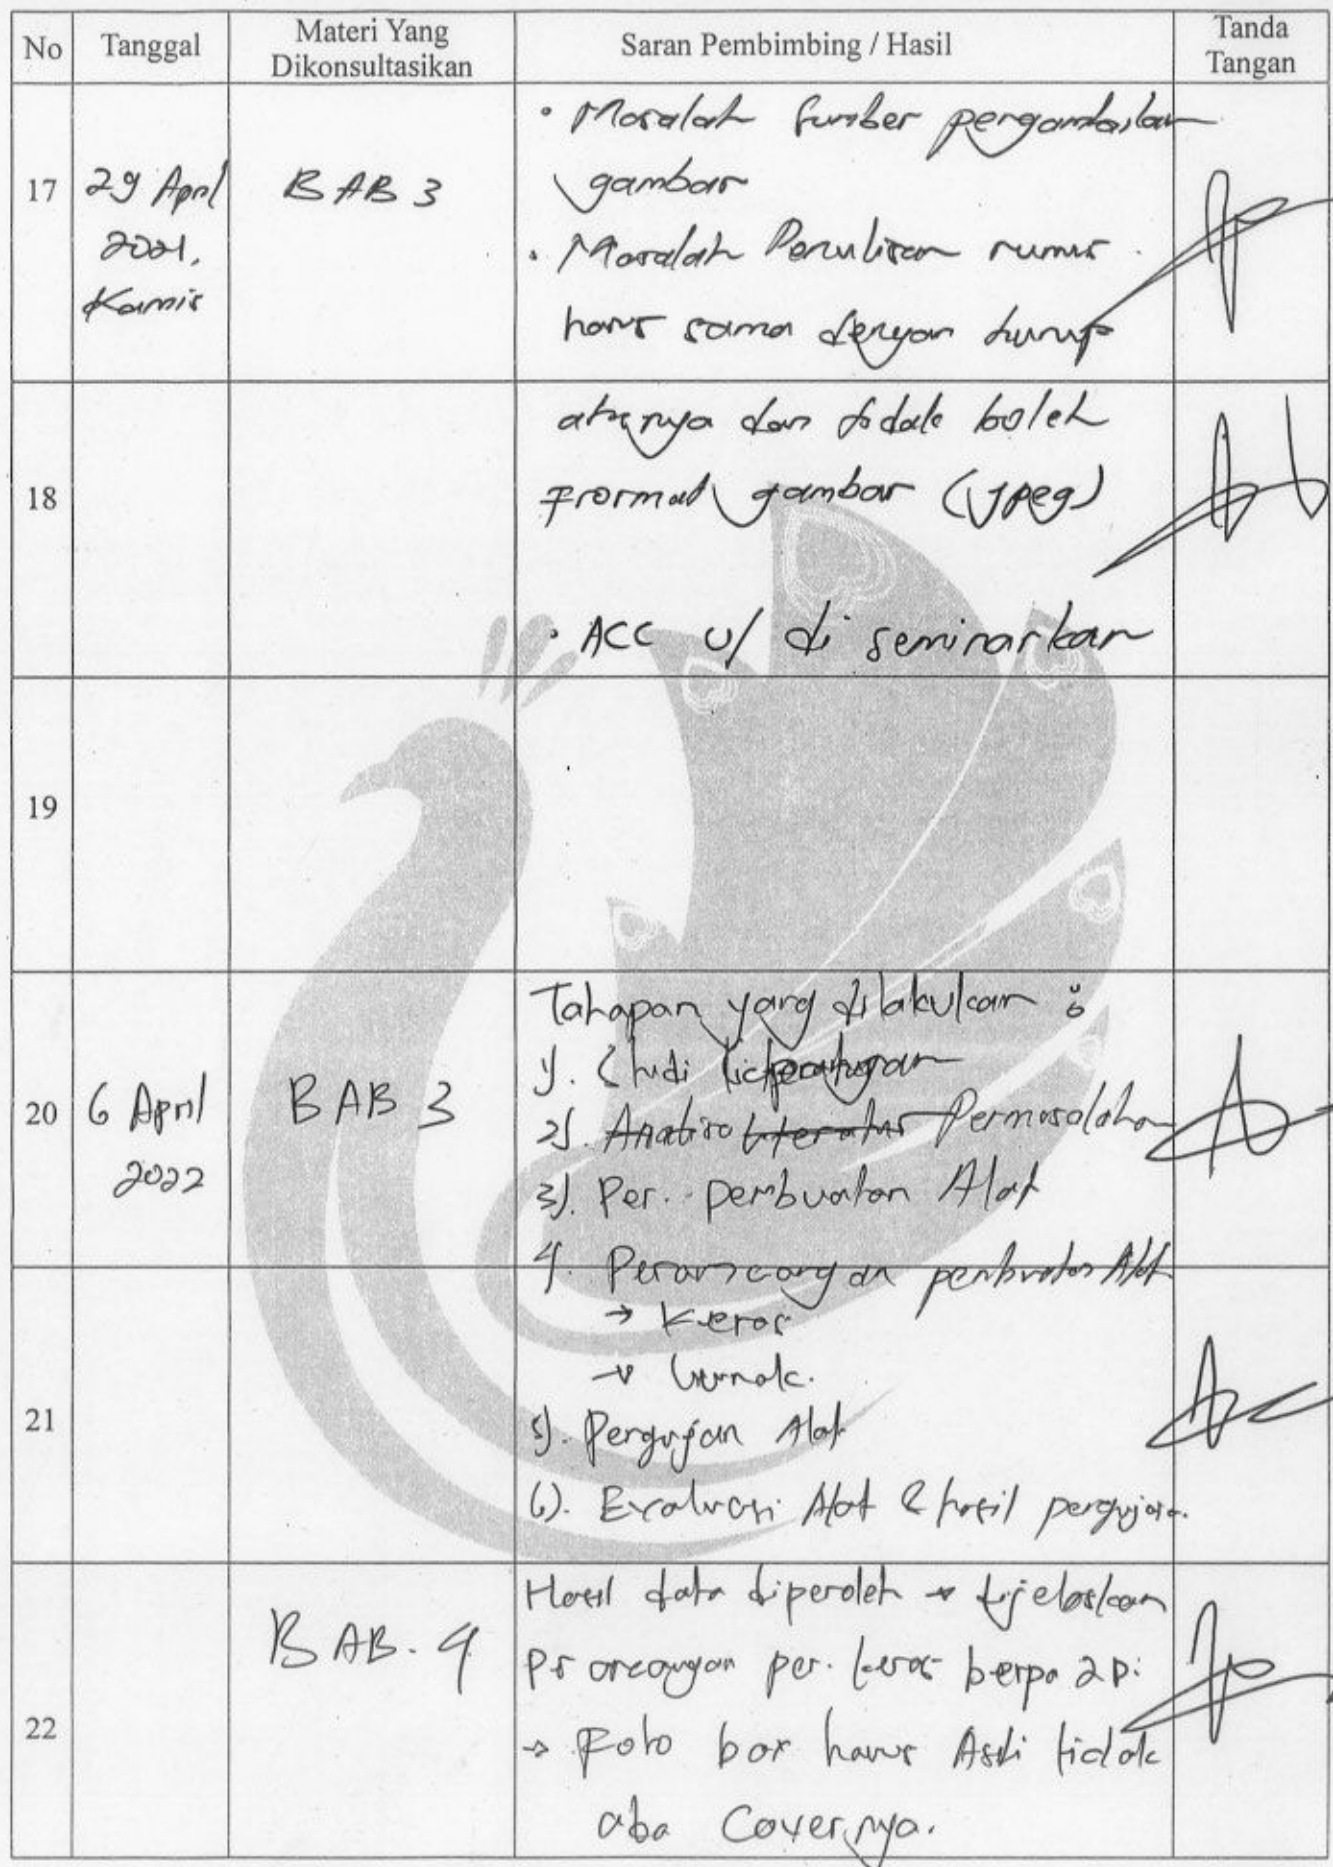 No Tanggal Materi Yang Dikonsultasikan Saran Pembimbing / Hasil Tanda Tangan
17 29 April 2021, Kamis BAB 3
• Masalah Sumber pengambilan
gambar
• Masalah Penulisan rumus
harus sama dengan huruf
18
dan tidak boleh
Fformat gambar (Jpeg)
• ACC u/ di seminarkan
19
20 6 April 2022 BAB 3
Tahapan yang dilakukan :
1). Studi
2). Analisa Permasalahan
3). Per. pembuatan Alat
4. pembuatan Alat
→ Keras
→ lunak.
21
5). Pengujian Alat
6). Evaluasi Alat & hasil pengujian.
22 BAB. 4
Hasil data diperoleh → dijelaskan
per. keras
→ Foto box harus Asli tidak
aba Covernya.